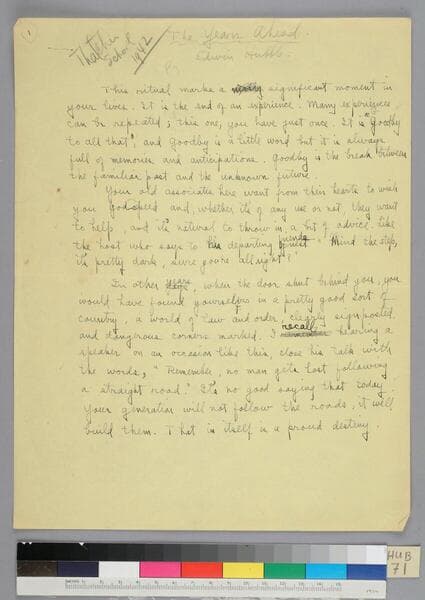 1
Thatcher
School
1942
The Years Ahead
By Edwin Hubble.
This ritual marks a significant moment in
your lives. It is the end of an experience. Many experiences
can be repeated; this one, you have just once. It is "Goodby
to all that", and Goodby is a little word but it is always
full of memories and anticipations. Goodby is the break between
the familiar past and the unknown future.
Your old associates here want from their hearts to wish
you Godspeed and, whether its of any use or not, they want
to help, and its natural to throw in a bit of advice. Like
the host who says to his departing guest "Mind the step,
its pretty dark, sure you're all right?"
In other years, when the door shut behind you, you
would have found yourselves in a pretty good sort of
country, a world of law and order, clearly sign posted
and dangerous corners marked. I recall hearing a
speaker on an occasion like this, close his talk with
the words, "Remember, no man gets lost following
a straight road." It's no good saying that today.
Your generation will not follow the roads, it will
build them. That in itself is a proud destiny.
HUB
71